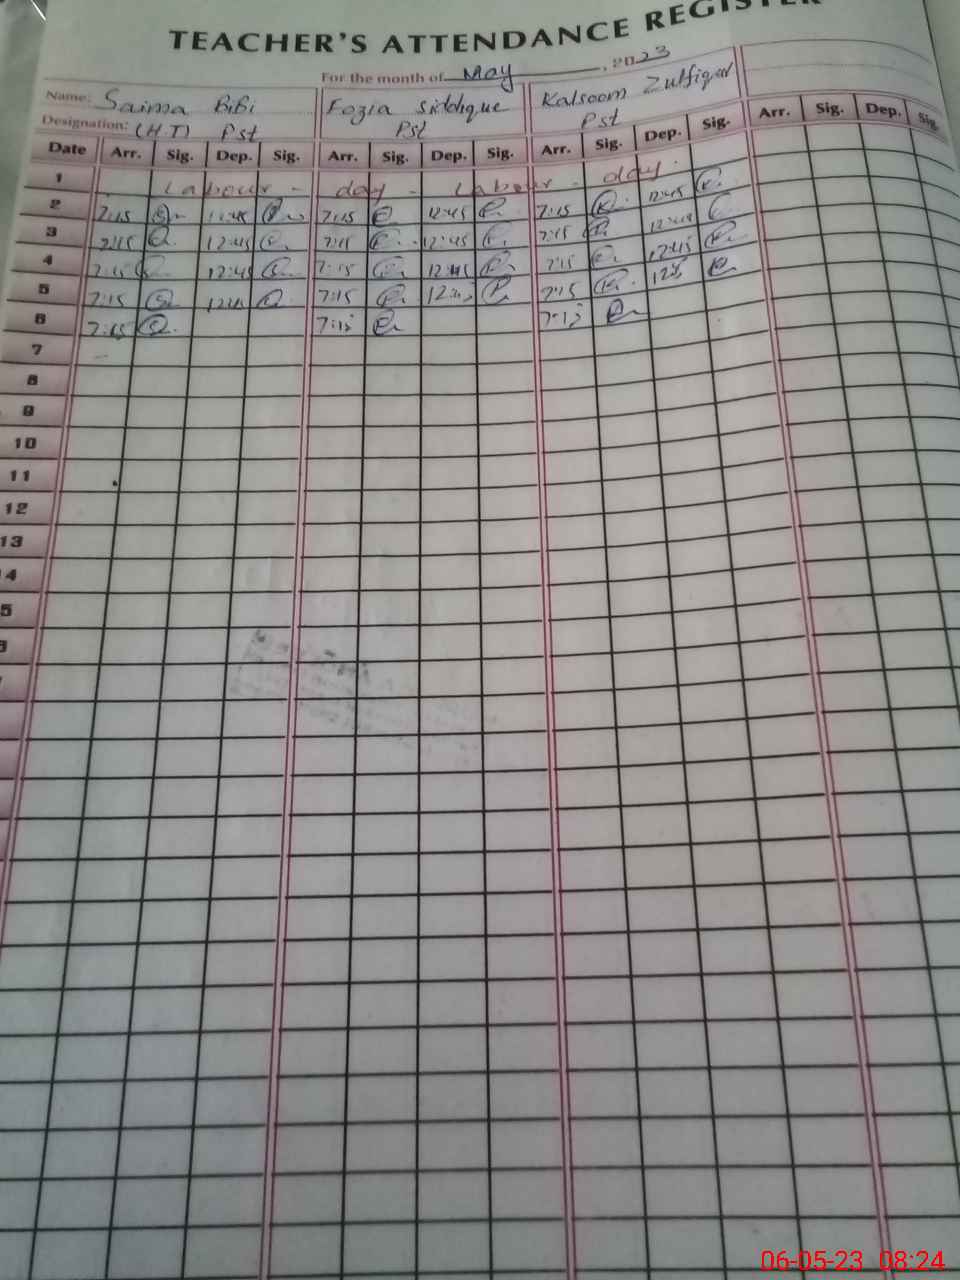 TEACHER'S ATTENDANCE REGISTER
For the month of May, 2023
Name: Saima BiBi Fozia Siddique Kalsoom Zulfiqar
Designation: (HT) Pst Pst Pst
Date Arr. Sig. Dep. Sig. Arr. Sig. Dep. Sig. Arr. Sig. Dep. Sig. Arr. Sig. Dep. Sig.
1 Labour - day - Labour - day.
2 7:15 7:15 12:45 7:15 12:45
3 7:15 12:45 7:15 12:45 7:15 12:45
4 7:15 12:45 7:15 12:45 7:15 12:45
5 7:15 7:15 7:15
6 7:15 7:15 7:15
7
8
9
10
11
12
13
4
5
06-05-23 08:24